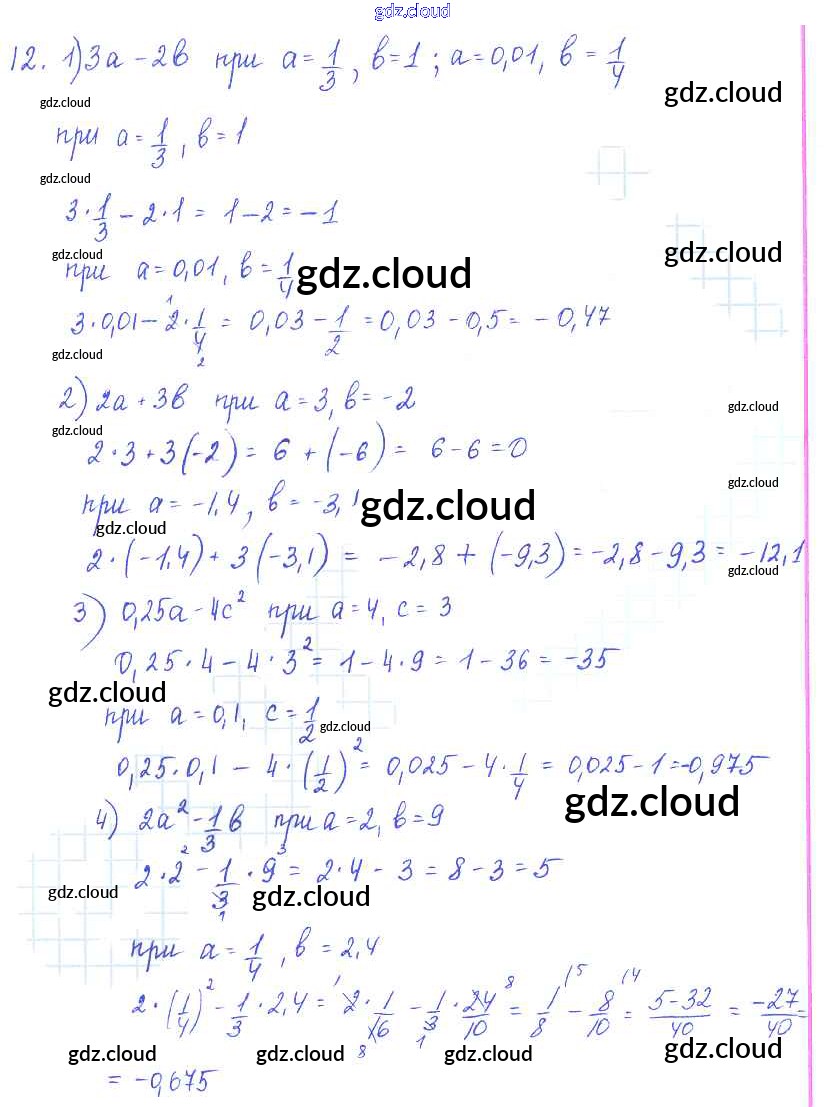 gdz.cloud
12. 1) 3a - 2b при a = 1/3, b = 1; a = 0,01, b = 1/4
gdz.cloud
gdz.cloud
при a = 1/3, b = 1
gdz.cloud
3 · 1/3 - 2 · 1 = 1 - 2 = -1
gdz.cloud
gdz.cloud
при a = 0,01, b = 1/4
gdz.cloud
3 · 0,01 - 2 · 1/4 = 0,03 - 1/2 = 0,03 - 0,5 = -0,47
gdz.cloud
2) 2a + 3b при a = 3, b = -2
gdz.cloud
gdz.cloud
2 · 3 + 3 (-2) = 6 + (-6) = 6 - 6 = 0
gdz.cloud
при a = -1,4, b = -3,1
gdz.cloud
gdz.cloud
2 · (-1,4) + 3 (-3,1) = -2,8 + (-9,3) = -2,8 - 9,3 = -12,1
gdz.cloud
3) 0,25a - 4c² при a = 4, c = 3
0,25 · 4 - 4 · 3² = 1 - 4 · 9 = 1 - 36 = -35
gdz.cloud
при a = 0,1, c = 1/2
gdz.cloud
0,25 · 0,1 - 4 · (1/2)² = 0,025 - 4 · 1/4 = 0,025 - 1 = -0,975
gdz.cloud
4) 2a² - 1/3 b при a = 2, b = 9
2 · 2² - 1/3 · 9 = 2 · 4 - 3 = 8 - 3 = 5
gdz.cloud
gdz.cloud
при a = 1/4, b = 2,4
2 · (1/4)² - 1/3 · 2,4 = 2 · 1/16 - 1/3 · 24/10 = 1/8 - 8/10 = 5-32/40 = -27/40 =
gdz.cloud gdz.cloud gdz.cloud gdz.cloud
= -0,675